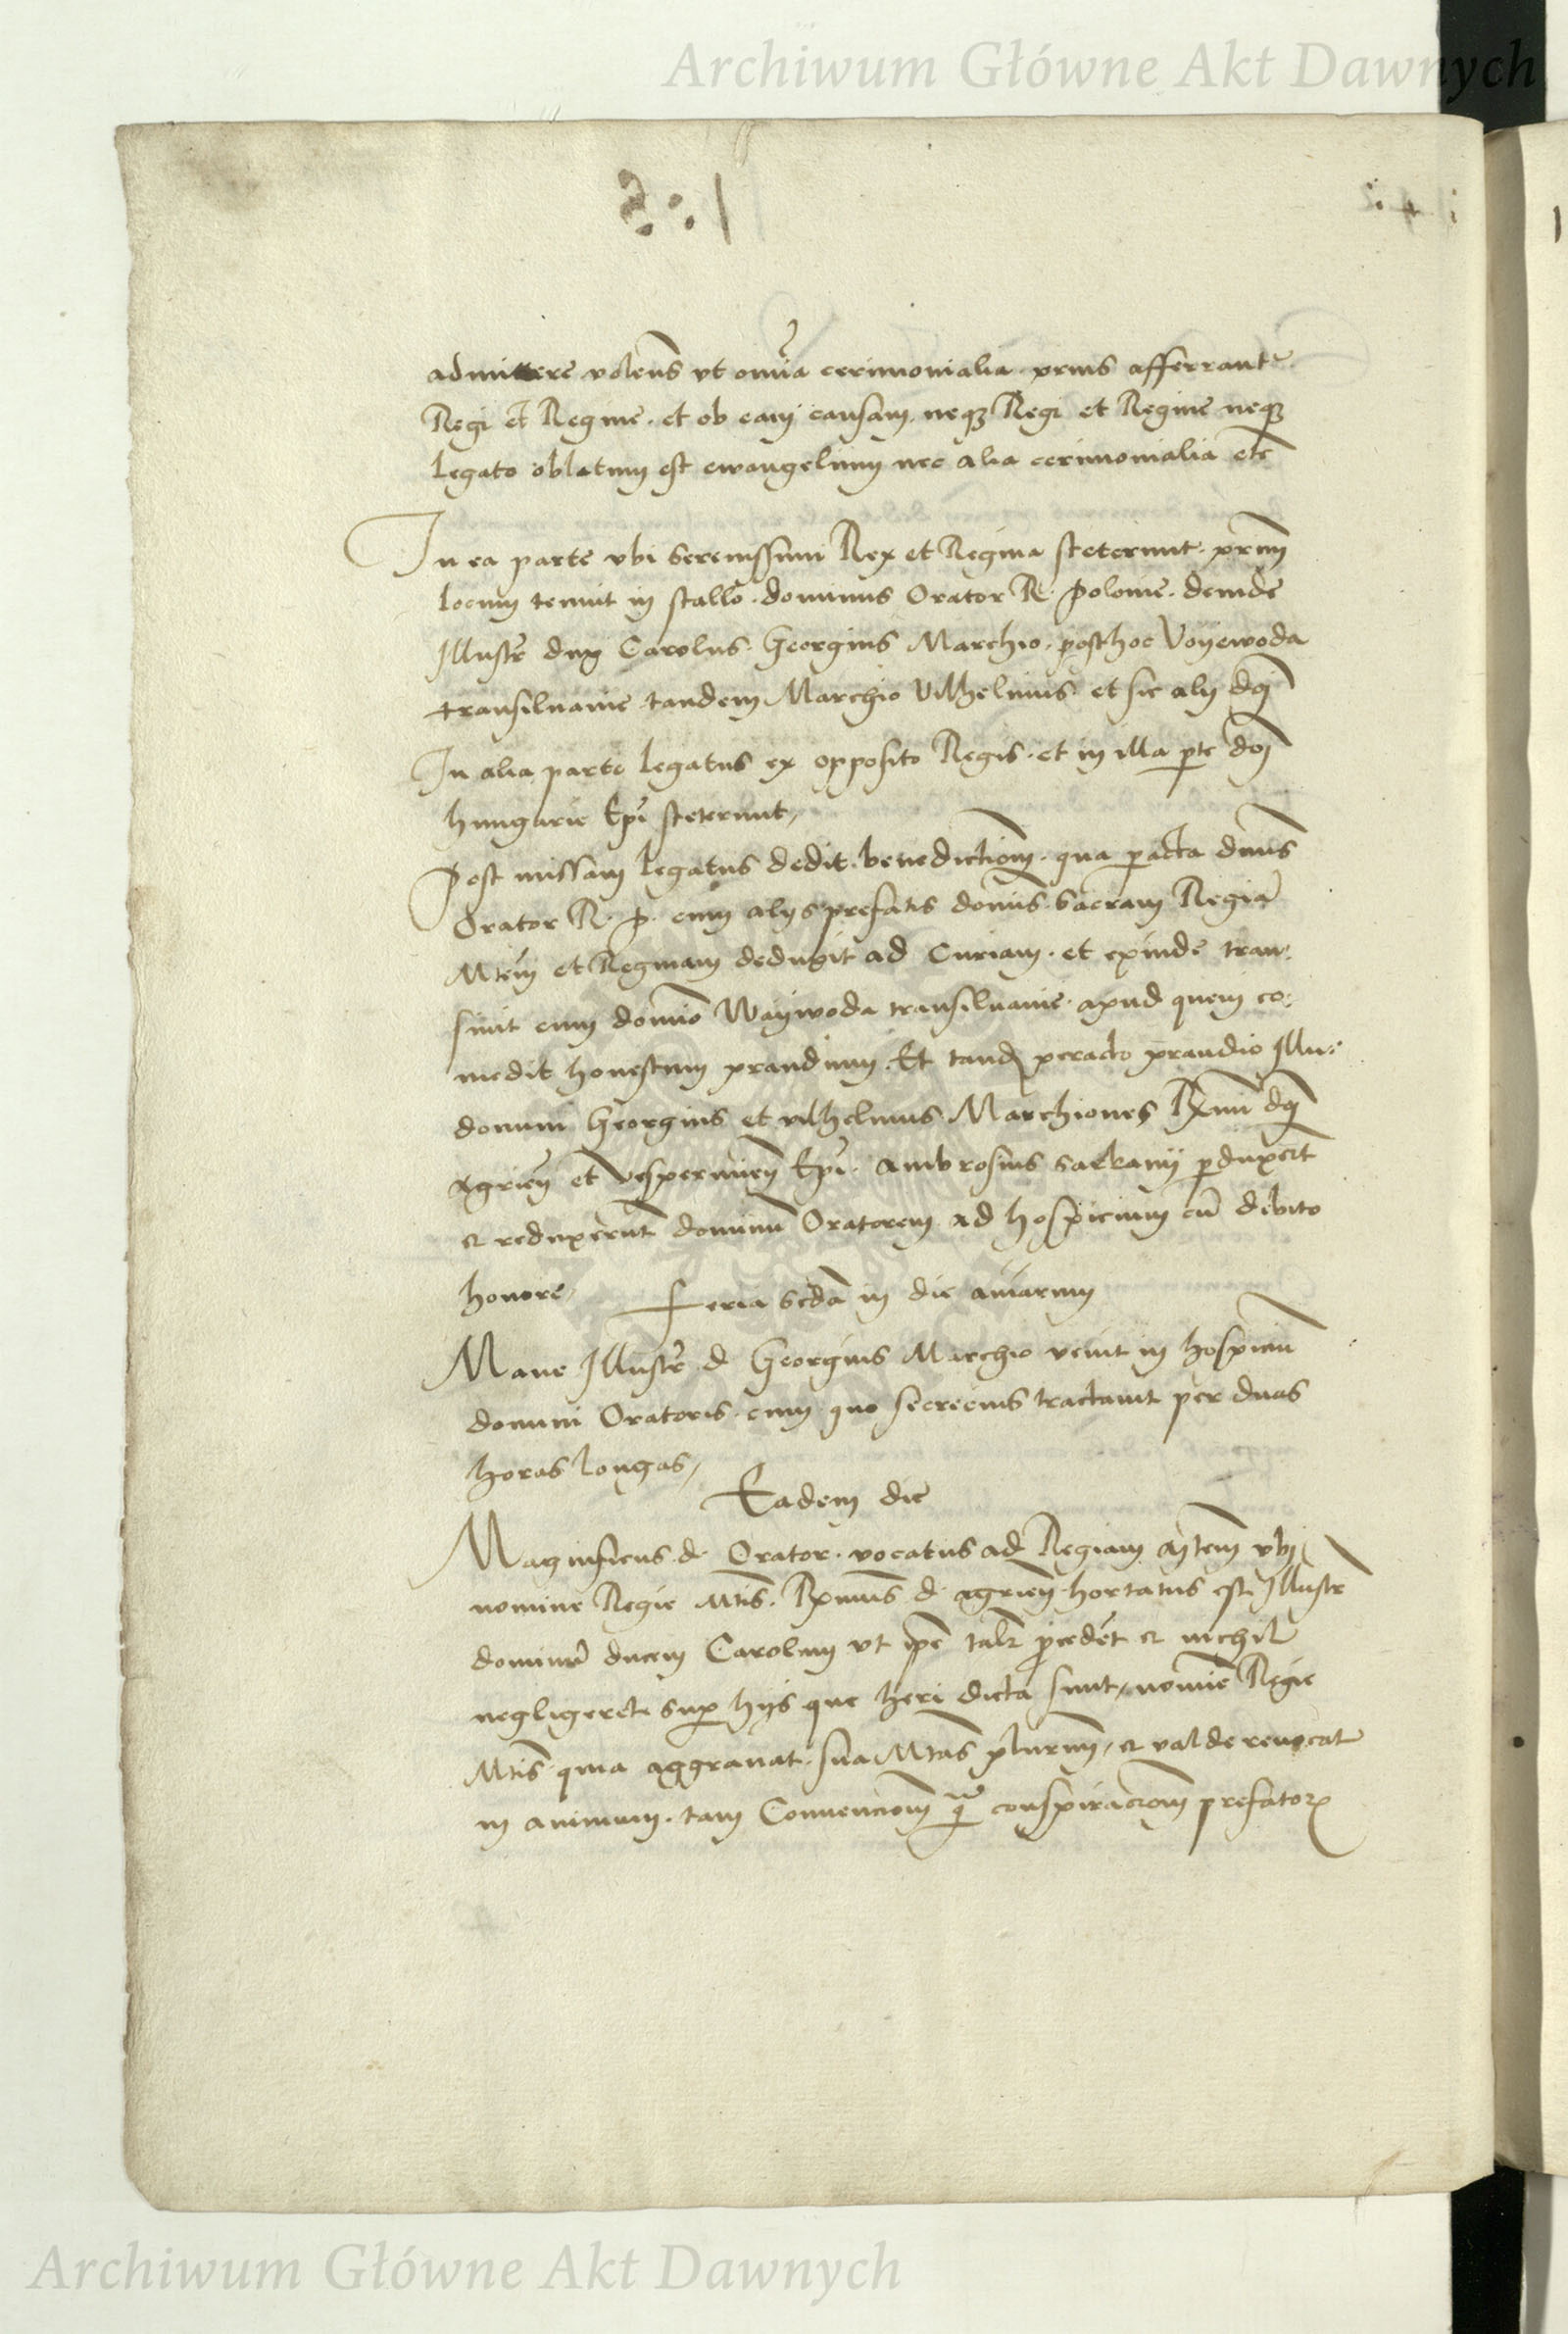 Archiwum Główne Akt Dawnych
admittere volens vt omnia cerimonialia prius afferrantr
Regi et Regine · et ob eam causam neqз Regi et Regine neqз
Legato oblatum est ewangelium nec alia cerimonialia etc
In ea parte vbi Serenissimi Rex et Regina steterunt · primū
locum tenuit in stallo · dominus Orator R · Polonie · deinde
Illustr dux Carolus · Georgius Marchio · posthoc Voyewoda
transiluanie tandem Marchio Vilhelmus · et sic alij dnj
In alia parte Legatus ex opposito Regis · et in illa pte dnj
hungarie Epi steterunt,
Post missam Legatus dedit · benedictionem · qua pacta dnus
Orator R · P · cum alijs prefatis dominis Sacram Regiā
Mtem et Reginam deduxit ad Curiam · et exinde tran-
siuit cum domino Waywoda transiluanie · apud quem co-
medit honestum prandium · Et tandē peracto prandio Illu:
domini Georgius et vilhelmus Marchiones Rxmi dnj
Agrien et Vesperimien Epi · Ambrosius Sarkanij pduxert
et reduxerūt dominū Oratorem ad hospicium cū debito
honore,
feria Scda in die aīarum
Mane Illustr d Georgius Marchio venit in hospiciū
domini Oratoris · cum quo secrecius tractauit per duas
horas longas,
Eadem die
Magnificus d · Orator · vocatus ad Regiam Mtem vbj
nomine Regie Mtis · Rxmus d · agrien hortatus est Illustr
dominū ducem Carolum vt ipe talr pcedet et nichil
negligeret sup hijs que heri dicta sunt, nomine Regie
Mtis quia aggrauat · sua Mtas plurimū, et valde reuocat
in animum · tam Conuencionem qm conspiracionem prefator
Archiwum Główne Akt Dawnych